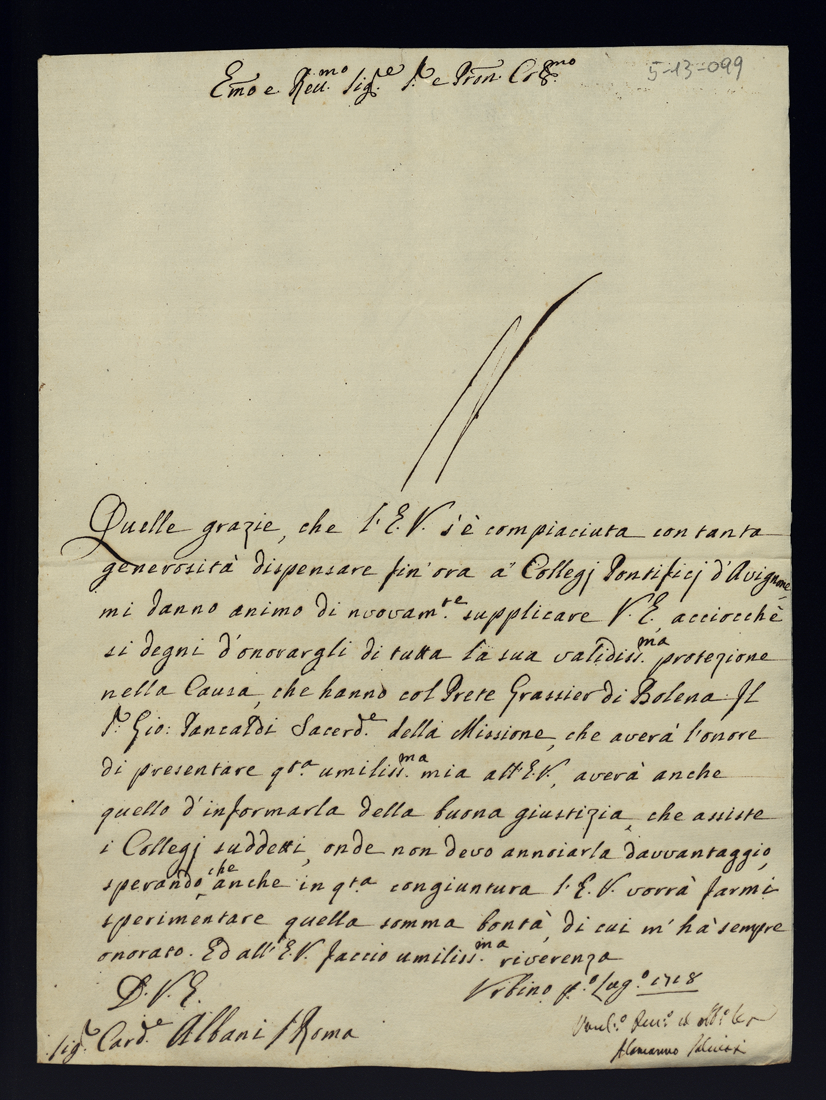 5-13-099
Emo e Reu.mo Sig.re P.re e Pron. Col.mo
Quelle grazie, che l'E.V. s'è compiaciuta con tanta
generosità dispensare fin'ora a' Collegj Pontificj d'Avignone,
mi danno animo di nvovam.te supplicare V.E. acciocchè
si degni d'onorargli di tutta la sua validiss.ma protezione
nella Causa, che hanno col Prete Grassier di Bolena. Il
P. Gio: Pancaldi Sacerd.e della Missione, che averà l'onore
di presentare qta umiliss.ma mia all'E.V., averà anche
quello d'informarla della buona giustizia, che assiste
i Collegj suddetti, onde non devo annoiarla davvantaggio,
sperando, che anche in qta congiuntura l'E.V. vorrà farmi
sperimentare quella somma bontà, di cui m'hà sempre
onorato. Ed all'E.V. faccio umiliss.ma riverenza
D.V.E. Vrbino p.o Lug.o 1718
Sig.r Card.e Albani / Roma
Alamanno Salviati